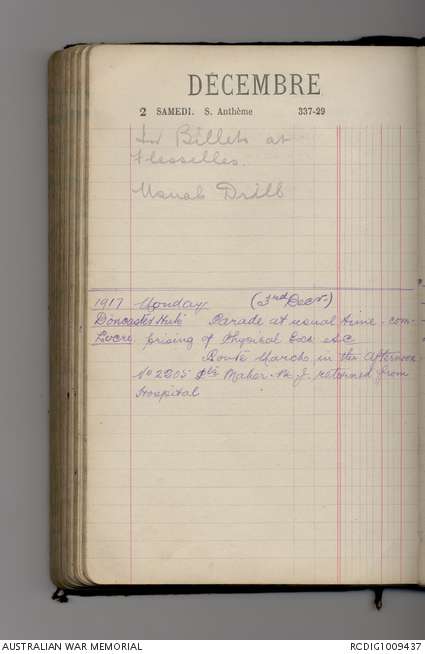 DÉCEMBRE
2 SAMEDI. S. Anthème 337-29
In Billets at
Flesselles.
Usual Drill
1917 Monday (3rd Decr)
Doncaster Huts Parade at usual time - com-
Locre prising of Physical Exs etc
Route March in the afternoon
No 2205 Pte Maher. M. J. returned from
Hospital
AUSTRALIAN WAR MEMORIAL RCDIG1009437